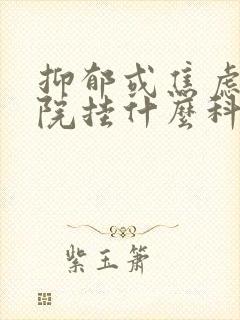 抑郁或焦虑
院挂什麽科
紫玉箫